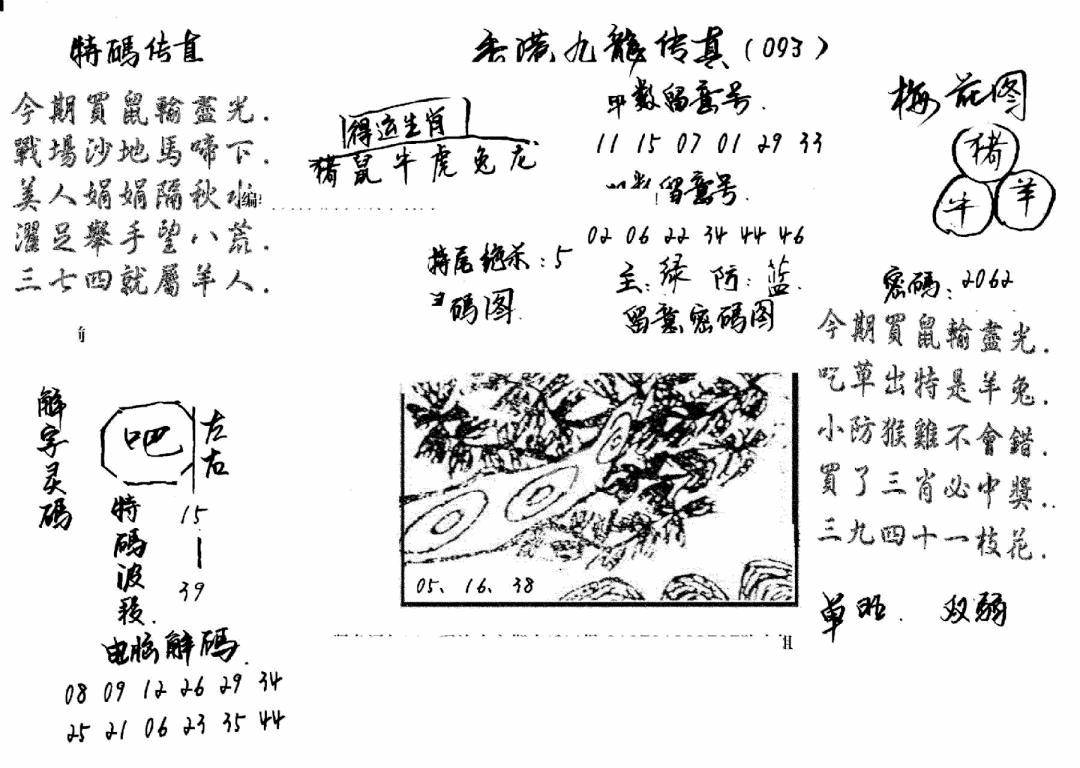 特碼传真
今期買鼠輸盡光.
戰場沙地馬啼下.
美人娟娟隔秋水
编
濯足舉手望八荒.
三七四就屬羊人.
香港九龍传真(093)
得运生肖
猪鼠牛虎兔龙
单数留意号.
11 15 07 01 29 33
留意号.
02 06 22 34 44 46
主:绿 防:蓝.
留意密碼图
特尾绝杀:5
碼图.
梅花图
猪
牛 羊
密碼:2062
今期買鼠輸盡光.
吃草出特是羊兔.
小防猴雞不會錯.
買了三肖必中獎..
三九四十一枝花.
单 双弱
解字灵碼
吧
左右
特碼波段.
15
39
电脑解碼.
08 09 12 26 29 34
25 21 06 23 35 44
05、16、38